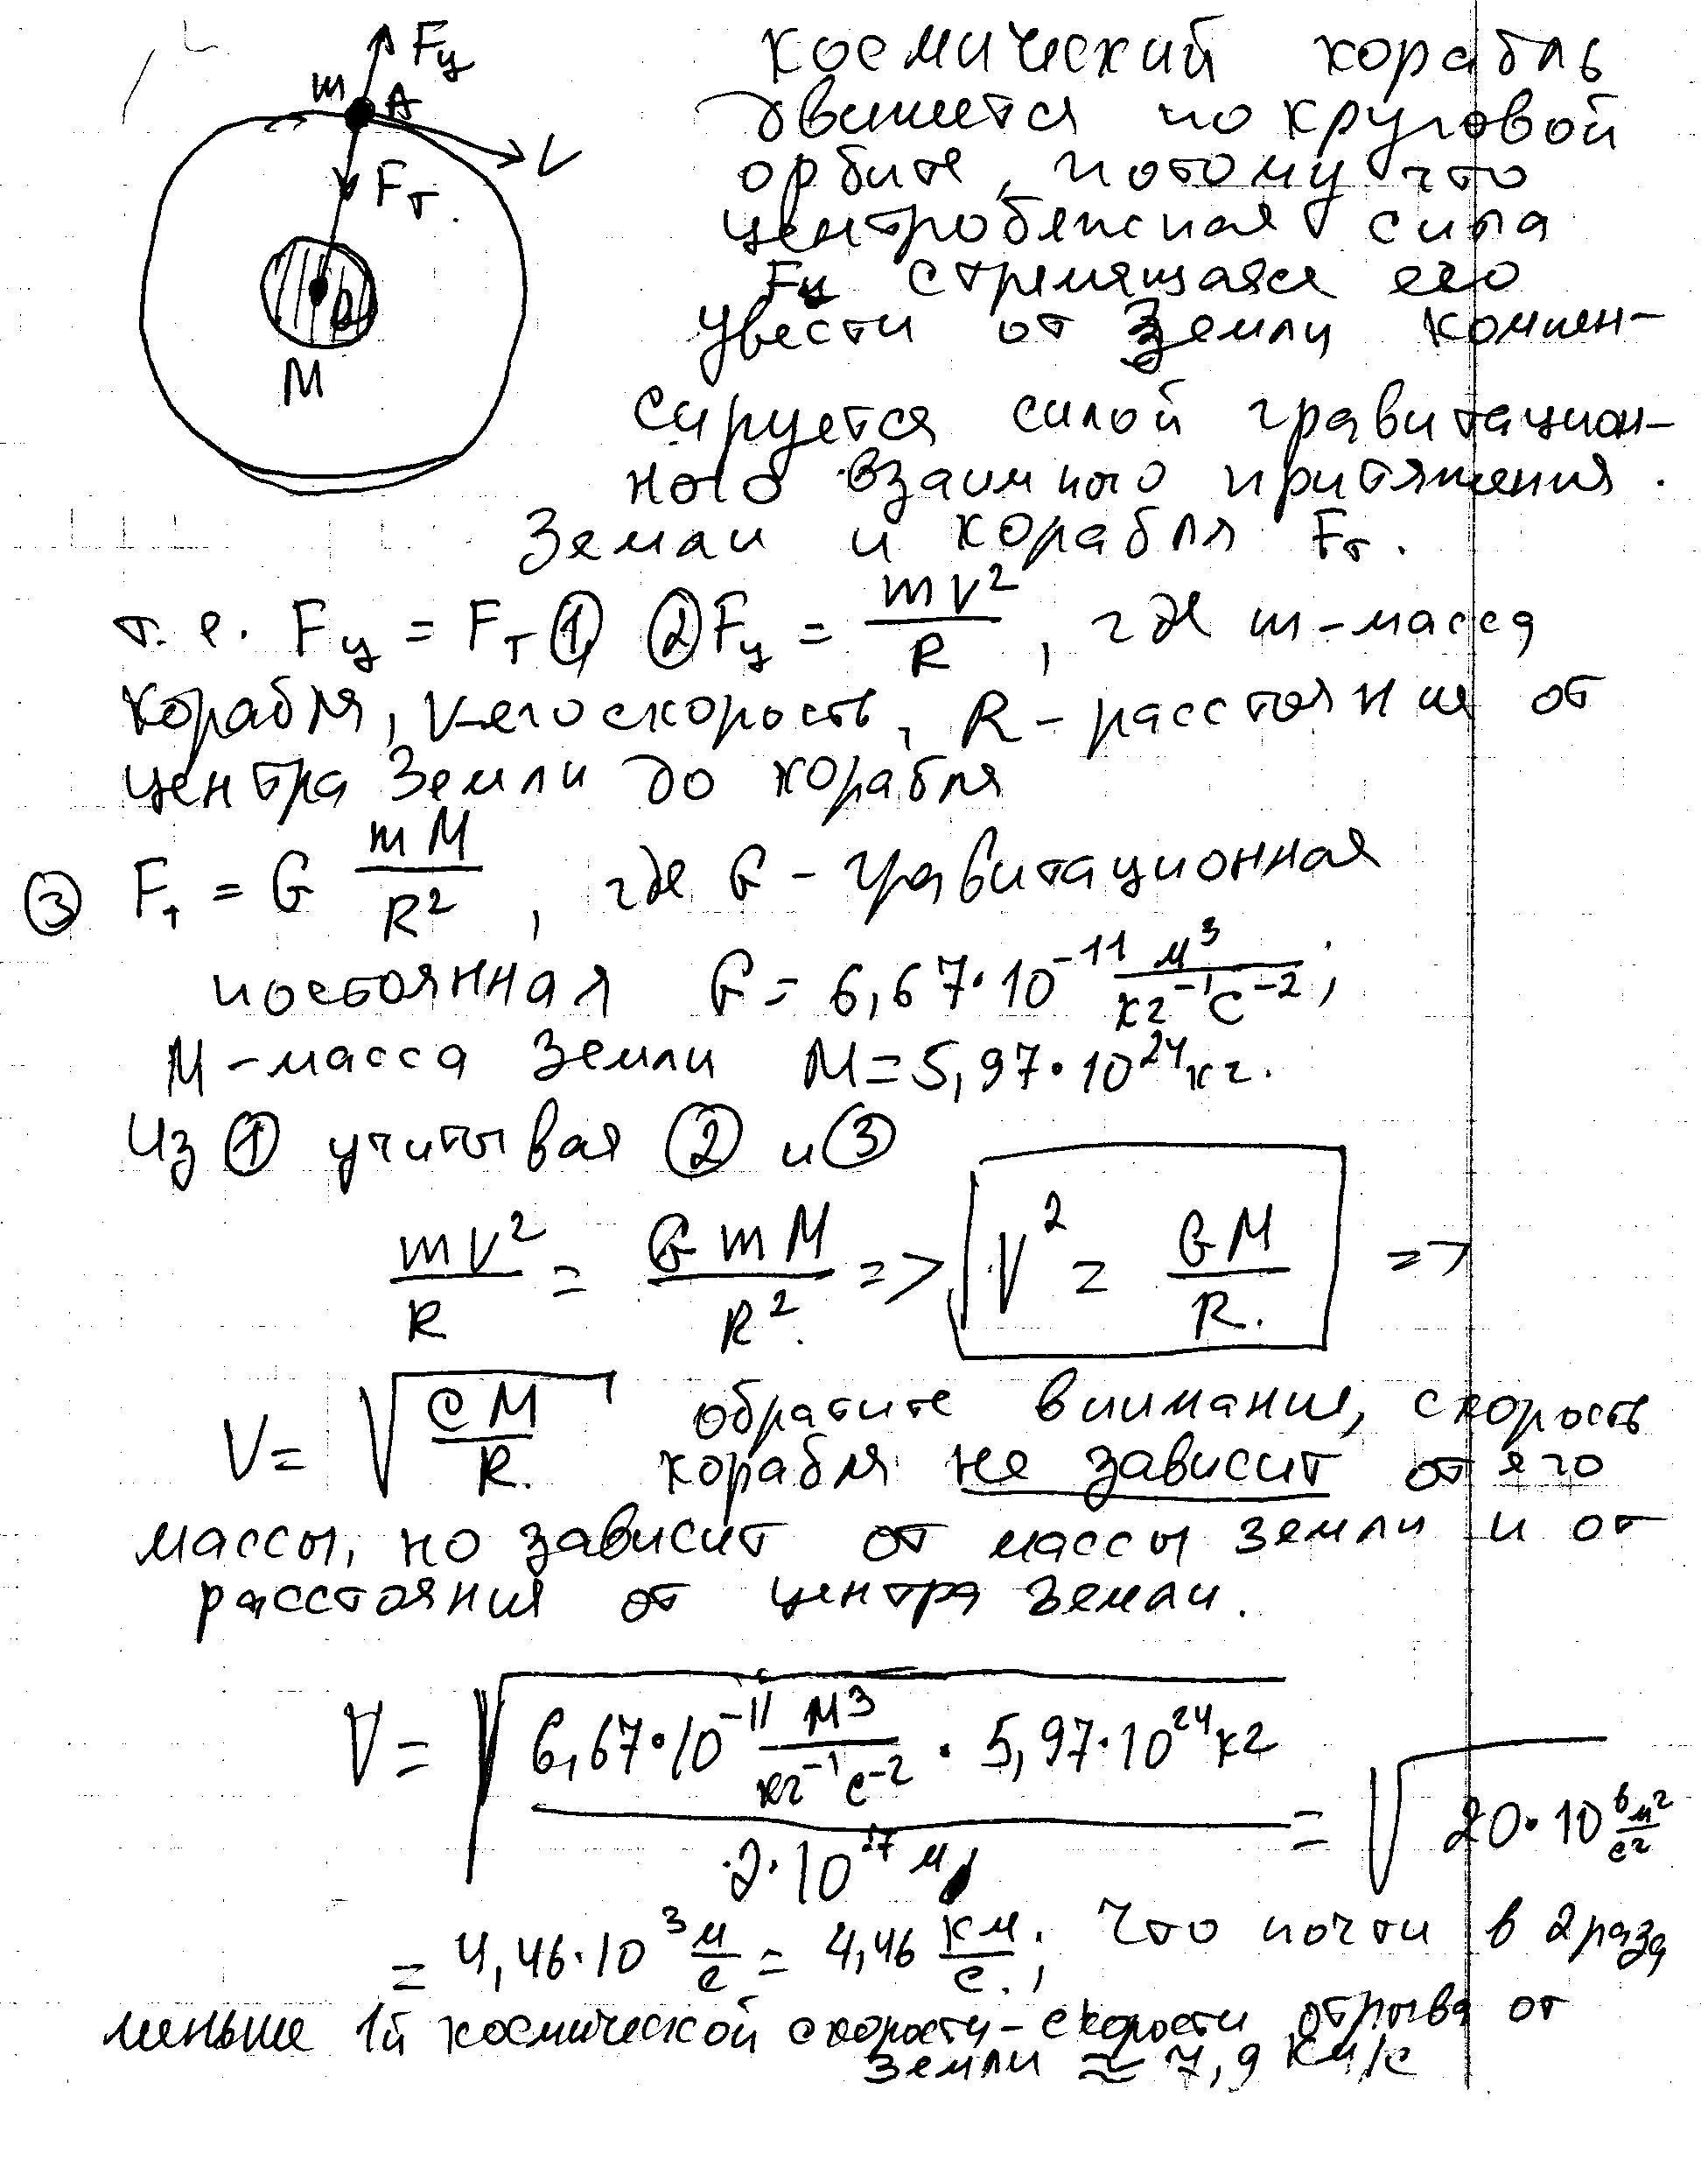 Fц
m A
V
Fт.
M
космический корабль
движется по круговой
орбите, потому что
центробежная сила
Fц стремящаяся его
увести от Земли компен-
сируется силой гравитацион-
ного взаимного притяжения.
Земли и корабля Fт.
т.е. Fц = Fт ① ② Fц = mV²/R, где m-масса
корабля, V-его скорость, R - расстояние от
центра Земли до корабля
③ Fт = G mM/R², где G - гравитационная
постоянная G = 6,67·10⁻¹¹ м³/кг⁻¹с⁻²;
M - масса Земли M = 5,97·10²⁴кг.
Из ① учитывая ② и ③
mV²/R = GmM/R². => V² = GM/R. =>
V = √(GM/R.) обратите внимание, скорость
корабля не зависит от его
массы, но зависит от массы Земли и от
расстояния от центра Земли.
V = √(6,67·10⁻¹¹ м³/кг⁻¹с⁻² · 5,97·10²⁴кг / 2·10⁷ м) = √(20·10⁶ м²/с²)
= 4,46·10³ м/с = 4,46 км/с.; Что почти в 2 раза
меньше 1й космической скорости - скорости отрыва от
Земли ≈ 7,9 км/с